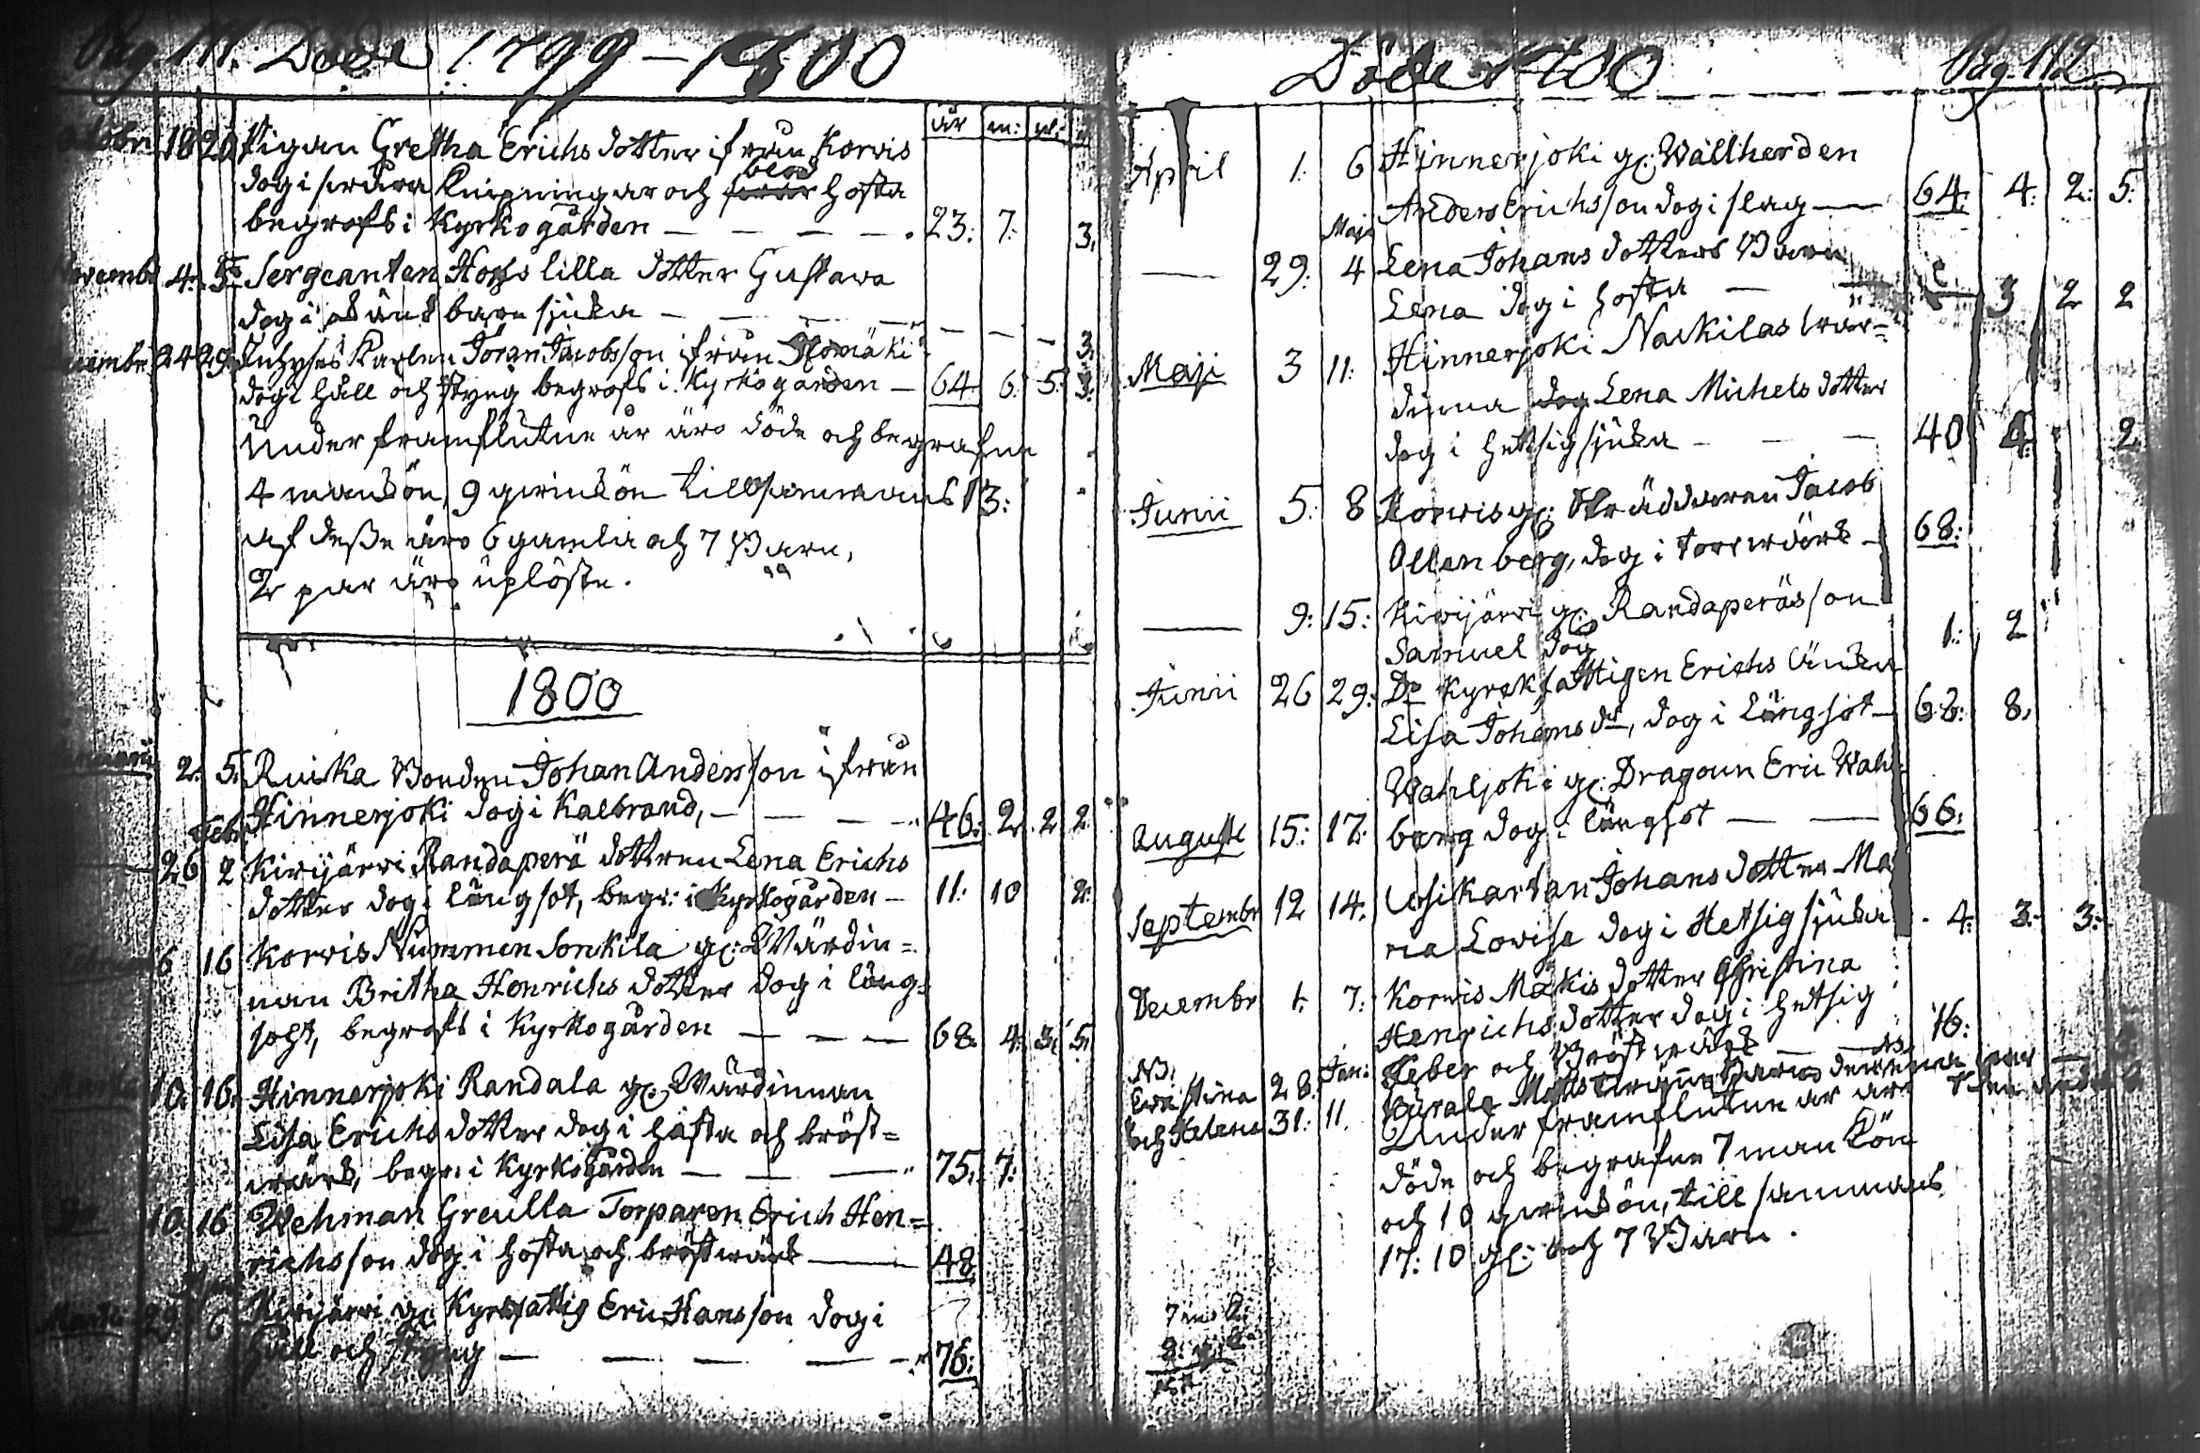 Pag. 111. Döde 1799 – 1800
år m: v: d:
octobr 18 20 Pigan Gretha Erichs dotter ifrån Korvis
dog i svåra knipningar och blod hosta
begrofs i Kyrkogården — 23: 7: 3.
Novembr 4. 5. Sergeanten Hofs lilla dotter Gustava
dog i okänbara sjuka — — — — 3.
Decembr 24 29 Inhyses Karlen Jöran Jacobsson ifrån
dog i håll och styng begrofs i Kyrkogården — 64. 6: 5: 3:
Under framflutne år äro döde och begrafne
4 mankön, 9 qvinkön tillsammans 13:
af desse äro 6 gamla och 7 Barn,
2 par äro uplöste.
1800
Januarii 2. 5. Ruska Bonden Johan Andersson ifrån
Hinnerjoki dog i Kalbrand, — 46: 2. 2 2
Febr.
26 2 Kivijärvi Randaperä dottren Lena Erichs
dotter dog i långsot, begr: i Kyrkogården — 11: 10 2:
Februarii 6 16 Korvis Nummen Sonkila gl: Wärdin=
nan Britha Henrichs dotter dog i lång=
soht, begrofs i Kyrkogården — — — 68. 4: 3. 5.
Martii 10. 16. Hinnerjoki Randala gl: Wärdinnan
Lisa Erichs dotter dog i hosta och bröst=
wärk, begr. i Kyrkogården — 75. 7:
Do 10 16 Wehman Greulla Torparen Erich Hen=
richsson dog i hosta och bröstwärk — 48
Martii 29. 6 Kivijärvi gl: Kyrkfattig Eric Hansson dog i
håll och styng — — — — 76:
Döde 1800 Pag. 112
April 1. 6 Hinnerjoki gl: Wallherden
Anders Erichsson dog i slag — 64. 4: 2: 5:
Maji
— 29: 4 Lena Johans dotters Barn
Lena dog i hosta — 3 2 2
Maji 3 11: Hinnerjoki Naskilas wär=
dinna Lena Michels dotter
dog i hetsig sjuka — — — 40 4: 2
Junii 5. 8 Korvis gl: Skräddaren Jacob
Ollenberg, dog i torrwärk — 68:
— 9: 15: Kivijärvi gl: Randaperäs son
Samuel dog 1: 2
Junii 26 29: Do Kyrckfattigen Erichs Enka
Lisa Johans dr, dog i långsot — 68: 8.
Wahljoki gl: Dragoun Eric Wahl
August 15: 17: berg dog i långsot — — 66.
Septembr 12 14. Johans dotter Ma
ria Lovisa dog i Hetsig sjuka . 4. 3. 3:
Decembr 1. 7: Korvis Mäkis dotter Christina
Henrichs dotter dog i hetsig
feber och Bröstwärk — — 16:
NB. Jan:
28.
och Helena 31: 11.
Under framflutne år äro
döde och begrafne 7 mankön
och 10 qvinkön, till sammans
17: 10 gl: och 7 Barn.